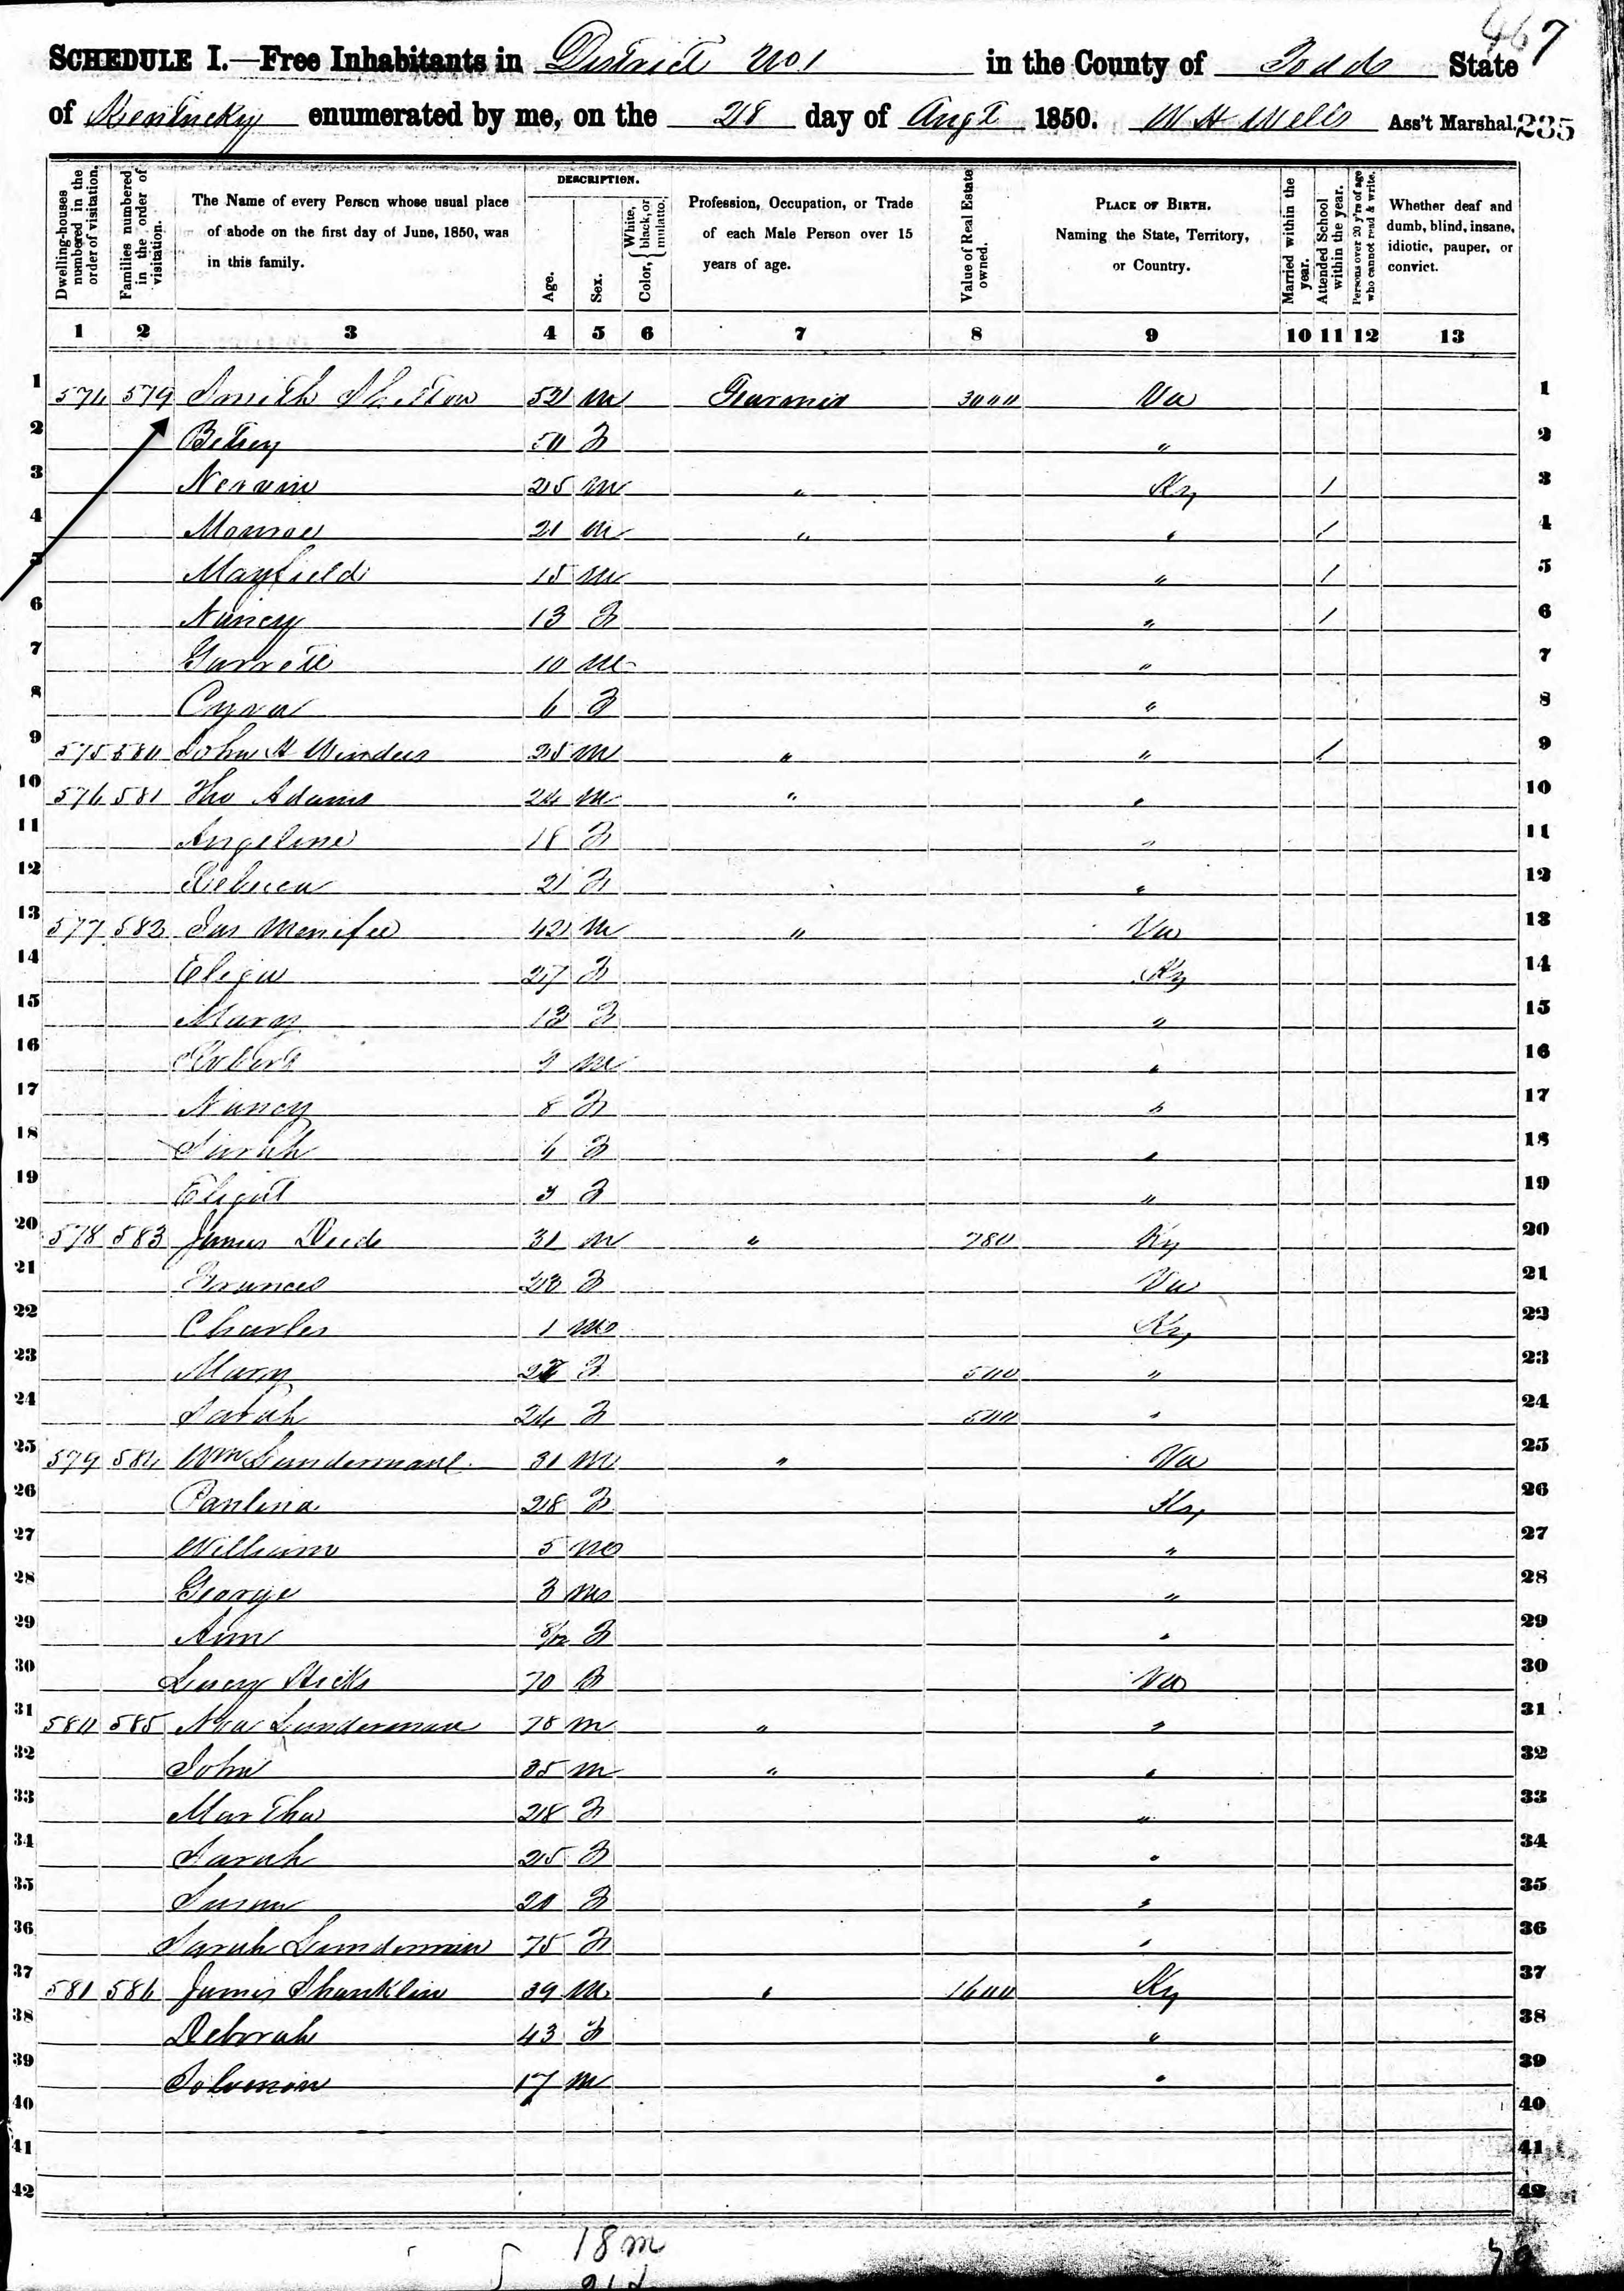 467
SCHEDULE I.—Free Inhabitants in District No 1 in the County of Todd State
of Kentucky enumerated by me, on the 28 day of Augt 1850. W H Wells Ass't Marshal. 235
Dwelling-houses numbered in the order of visitation.
Families numbered in the order of visitation.
The Name of every Person whose usual place of abode on the first day of June, 1850, was in this family.
DESCRIPTION.
Age.
Sex.
Color, { White, black, or mulatto.
Profession, Occupation, or Trade of each Male Person over 15 years of age.
Value of Real Estate owned.
PLACE OF BIRTH. Naming the State, Territory, or Country.
Married within the year.
Attended School within the year.
Persons over 20 y'rs of age who cannot read & write.
Whether deaf and dumb, blind, insane, idiotic, pauper, or convict.
1 2 3 4 5 6 7 8 9 10 11 12 13
1 574 579 Smith Shelton 52 M Farmer 3000 Va 1
2 Betsey 50 F " 2
3 25 M " Ky / 3
4 Monroe 21 M " " / 4
5 Mayfield 15 M " / 5
6 Nancy 13 F " / 6
7 Garrett 10 M " 7
8 6 F " 8
9 575 580 John H Winders 25 M " " / 9
10 576 581 Tho Adams 24 M " " 10
11 Angeline 18 F " 11
12 Rebecca 21 F " 12
13 577 582 Jas Menifee 42 M " Va 13
14 Eliza 27 F Ky 14
15 Mary 13 F " 15
16 Robert 9 M " 16
17 Nancy 8 F " 17
18 Sarah 6 F " 18
19 3 F " 19
20 578 583 James 31 M " 780 Ky 20
21 Frances 23 F Va 21
22 Charles 1 M Ky 22
23 Mary F 500 " 23
24 Sarah 24 F 500 " 24
25 579 584 Wm 31 M " Va 25
26 Paulina 28 F Ky 26
27 William 5 M " 27
28 George 3 M " 28
29 Ann 8/12 F " 29
30 Lucy Hicks 70 F Va 30
31 580 585 Lunderman 78 M " " 31
32 John 35 M " " 32
33 Martha 28 F " 33
34 Sarah 25 F " 34
35 Susan 20 F " 35
36 Sarah Lunderman 75 F " 36
37 581 586 James Shanklin 39 M " 1600 Ky 37
38 Deborah 43 F " 38
39 Solomon 17 M " 39
40 40
41 41
42 42
18 m